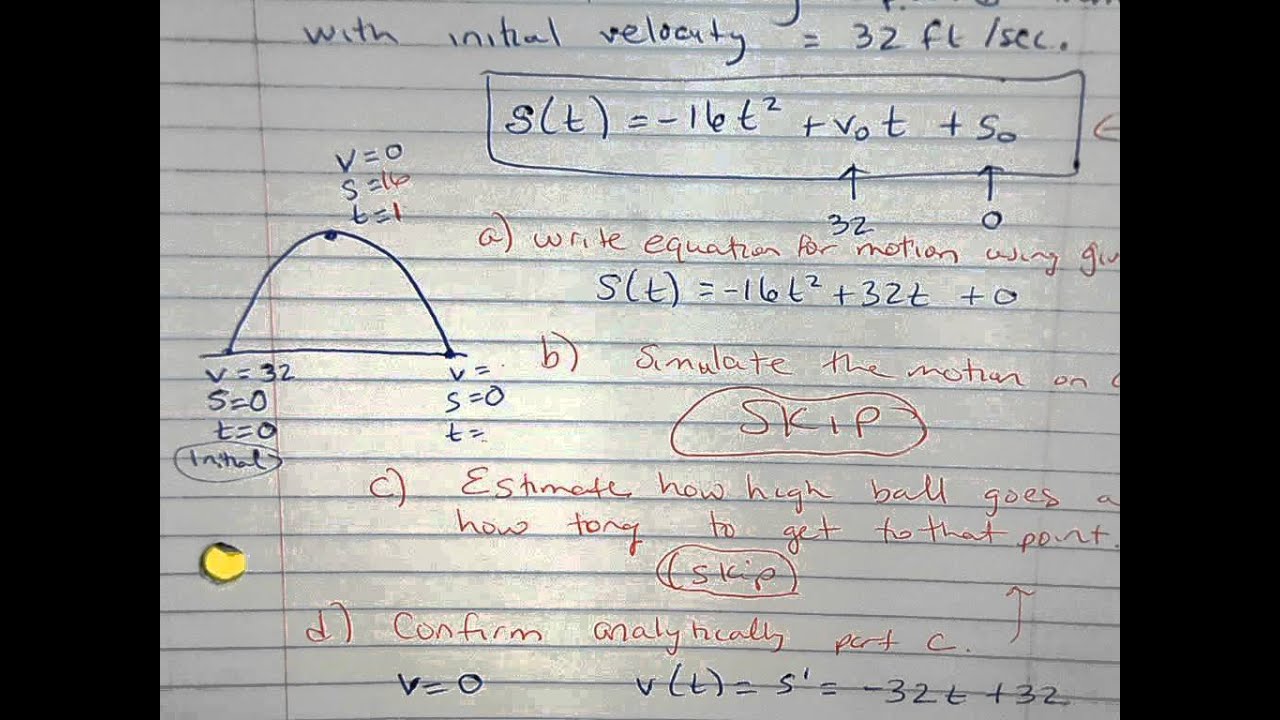 with initial velocity = 32 ft/sec.
s(t) = -16t² + v₀t + s₀
32
0
v=0
s=16
t=1
a) write equation for motion using
s(t) = -16t² + 32t + 0
v=32
s=0
t=0
Initial
v=
s=0
t=
b) Simulate the motion on
SKIP
c) Estimate how high ball goes
how long to get to that point.
skip
d) Confirm analytically part c.
v=0 v(t) = s' = -32t + 32